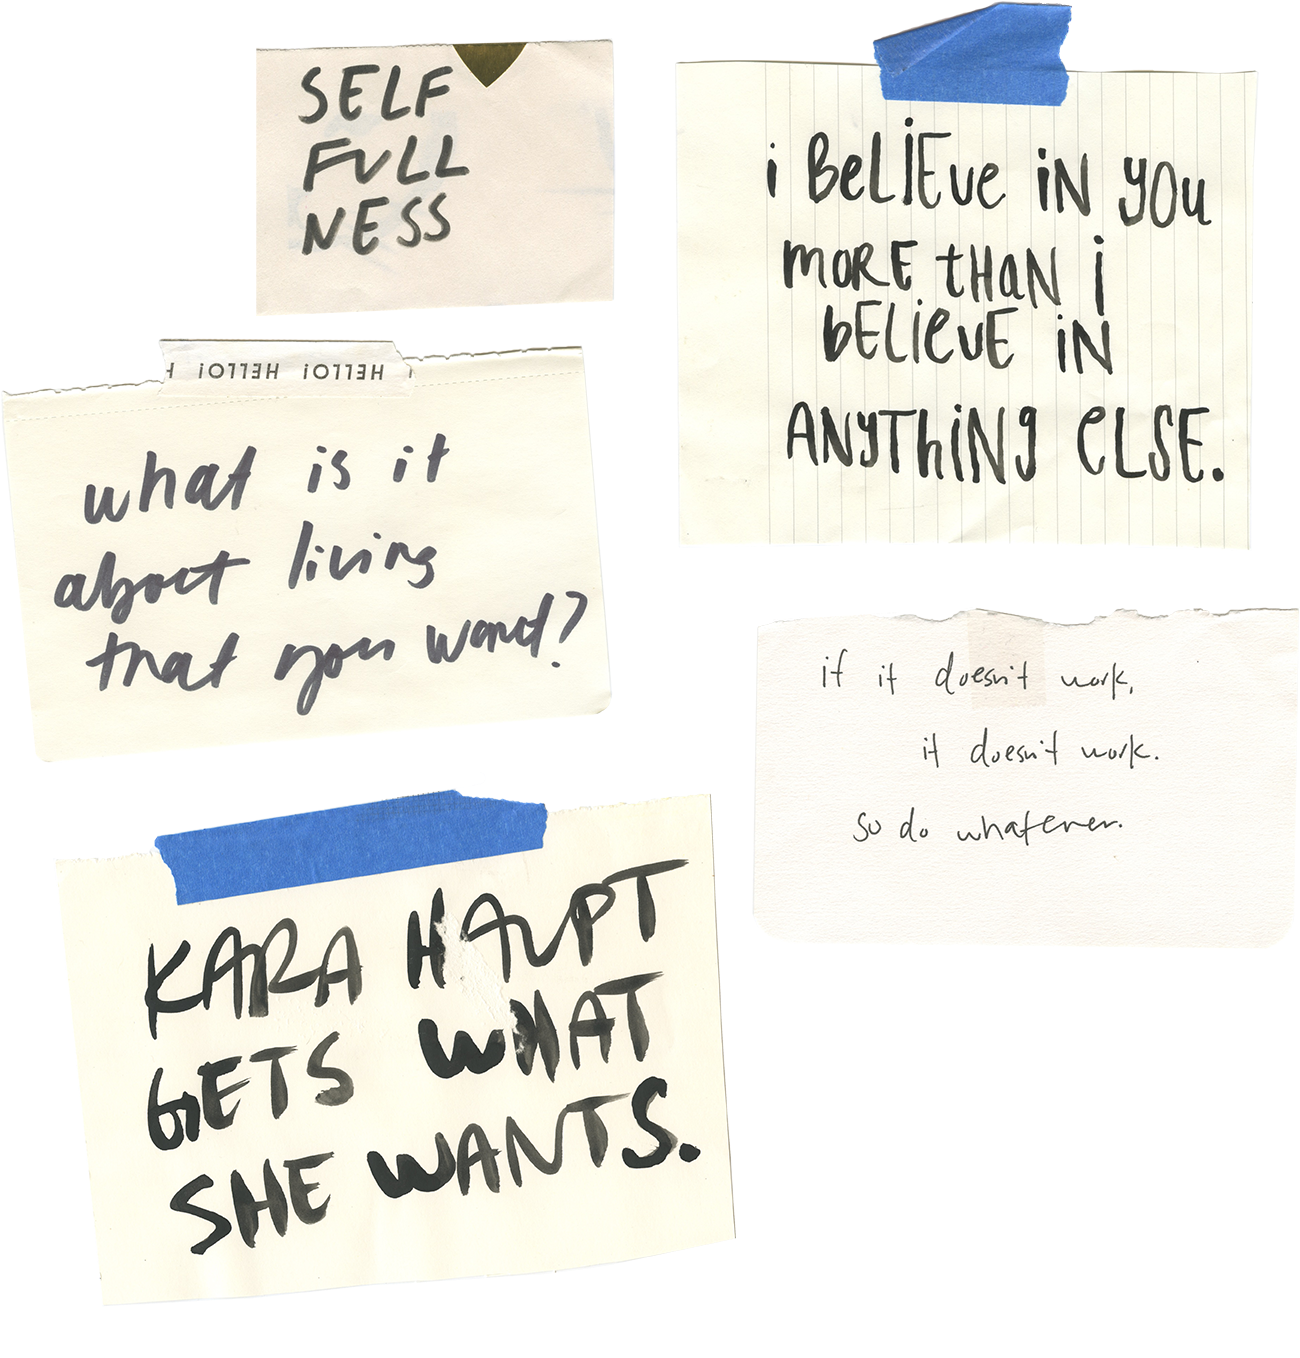 SELF
FULL
NESS
i BeLiEve iN yOu
mORE tHaN i
bELieve iN
ANyThiNg eLSE.
HELLO! HELLO! H
what is it
about living
that you want?
if it doesn't work,
it doesn't work.
so do whatever.
KARA HAUPT
GETS WHAT
SHE WANTS.